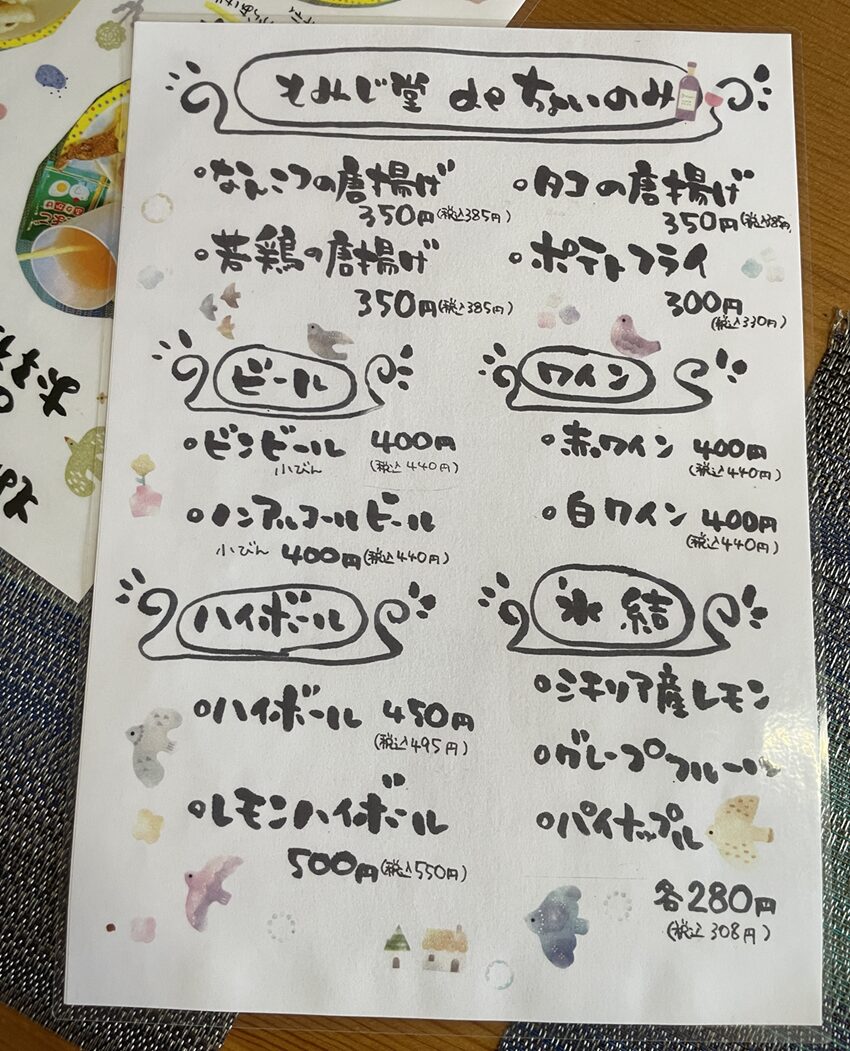 もみじ堂 de ちょいのみ
・なんこつの唐揚げ
350円(税込385円)
・タコの唐揚げ
350円(税込385円)
・若鶏の唐揚げ
350円(税込385円)
・ポテトフライ
300円
(税込330円)
ビール
・ビンビール 400円
小びん (税込440円)
・ノンアルコールビール
小びん 400円(税込440円)
ワイン
・赤ワイン 400円
(税込440円)
・白ワイン 400円
(税込440円)
ハイボール
・ハイボール 450円
(税込495円)
・レモンハイボール
500円(税込550円)
氷結
・シチリア産レモン
・グレープフルーツ
・パイナップル
各280円
(税込308円)